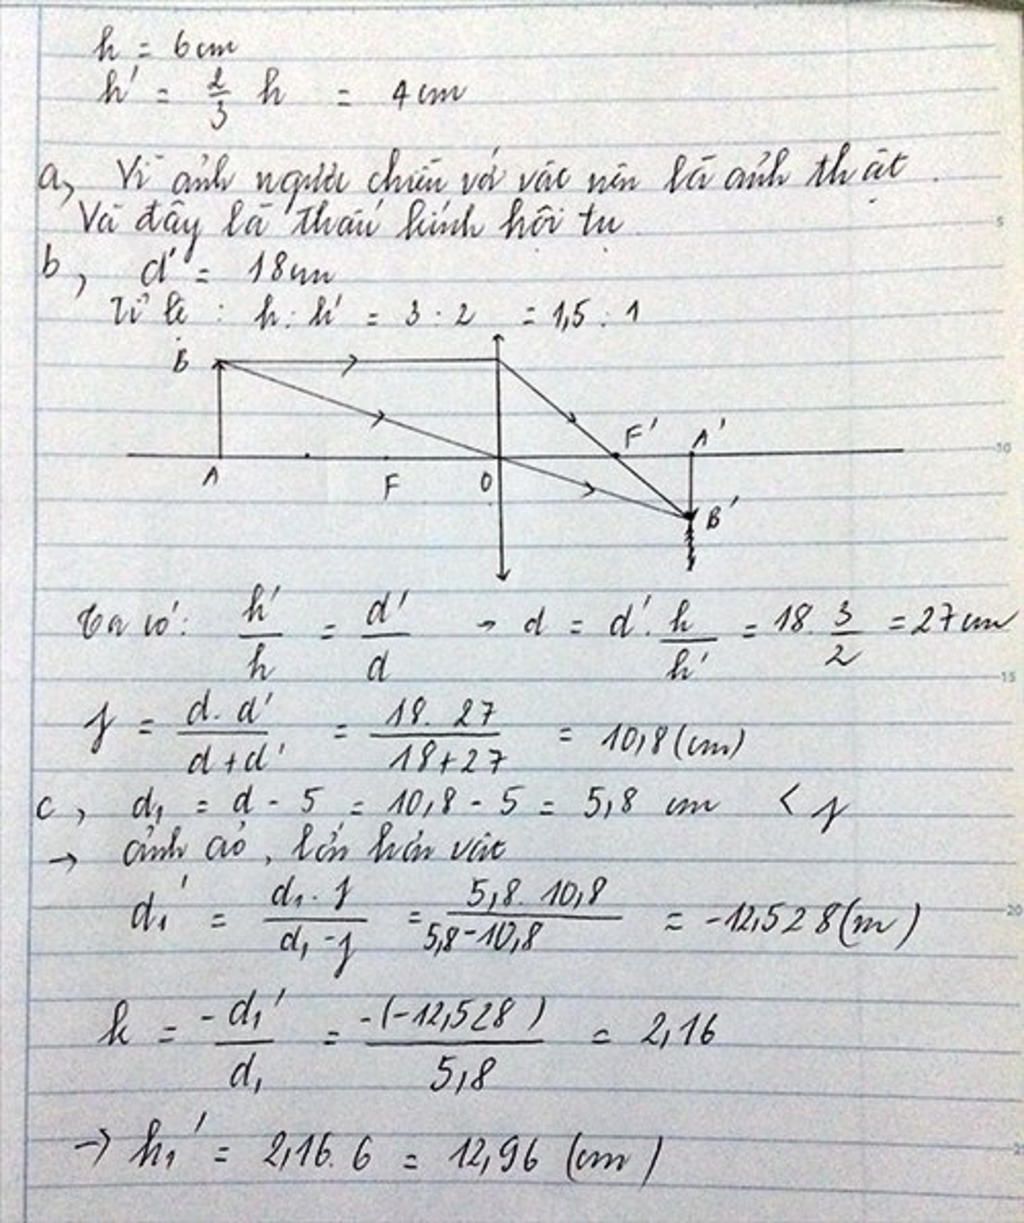 h = 6cm
h' = 2/3 h = 4cm
a, Vì ảnh ngược chiều với vật nên là ảnh thật.
Và đây là thấu kính hội tụ
b, d' = 18cm
Tỉ lệ : h : h' = 3 : 2 = 1,5 : 1
B
F' A'
A F O
B'
Ta có: h'/h = d'/d → d = d'. h/h' = 18. 3/2 = 27cm
f = d. d'/d + d' = 18. 27/18 + 27 = 10,8 (cm)
c, d₁ = d - 5 = 10,8 - 5 = 5,8 cm < f
→ ảnh ảo, lớn hơn vật
d₁' = d₁. f/d₁ - f = 5,8. 10,8/5,8 - 10,8 = -12,528 (m)
k = -d₁'/d₁ = -(-12,528)/5,8 = 2,16
→ h₁' = 2,16. 6 = 12,96 (cm)